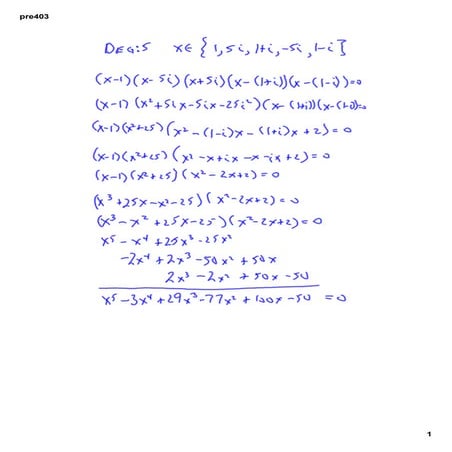 pre403
DEG:5 x∈{1,5i,1+i,-5i,1-i]
(x-1)(x-5i)(x+5i)(x-(1+i))(x-(1-i))=0
(x-1)(x²+5ix-5ix-25i²)(x-(1+i))(x-(1-i))=0
(x-1)(x²+25)(x²-(1-i)x-(1+i)x+2)=0
(x-1)(x²+25)(x²-x+ix-x-ix+2)=0
(x-1)(x²+25)(x²-2x+2)=0
(x³+25x-x²-25)(x²-2x+2)=0
(x³-x²+25x-25)(x²-2x+2)=0
x⁵-x⁴+25x³-25x²
-2x⁴+2x³-50x²+50x
2x³-2x²+50x-50
x⁵-3x⁴+29x³-77x²+100x-50=0
1